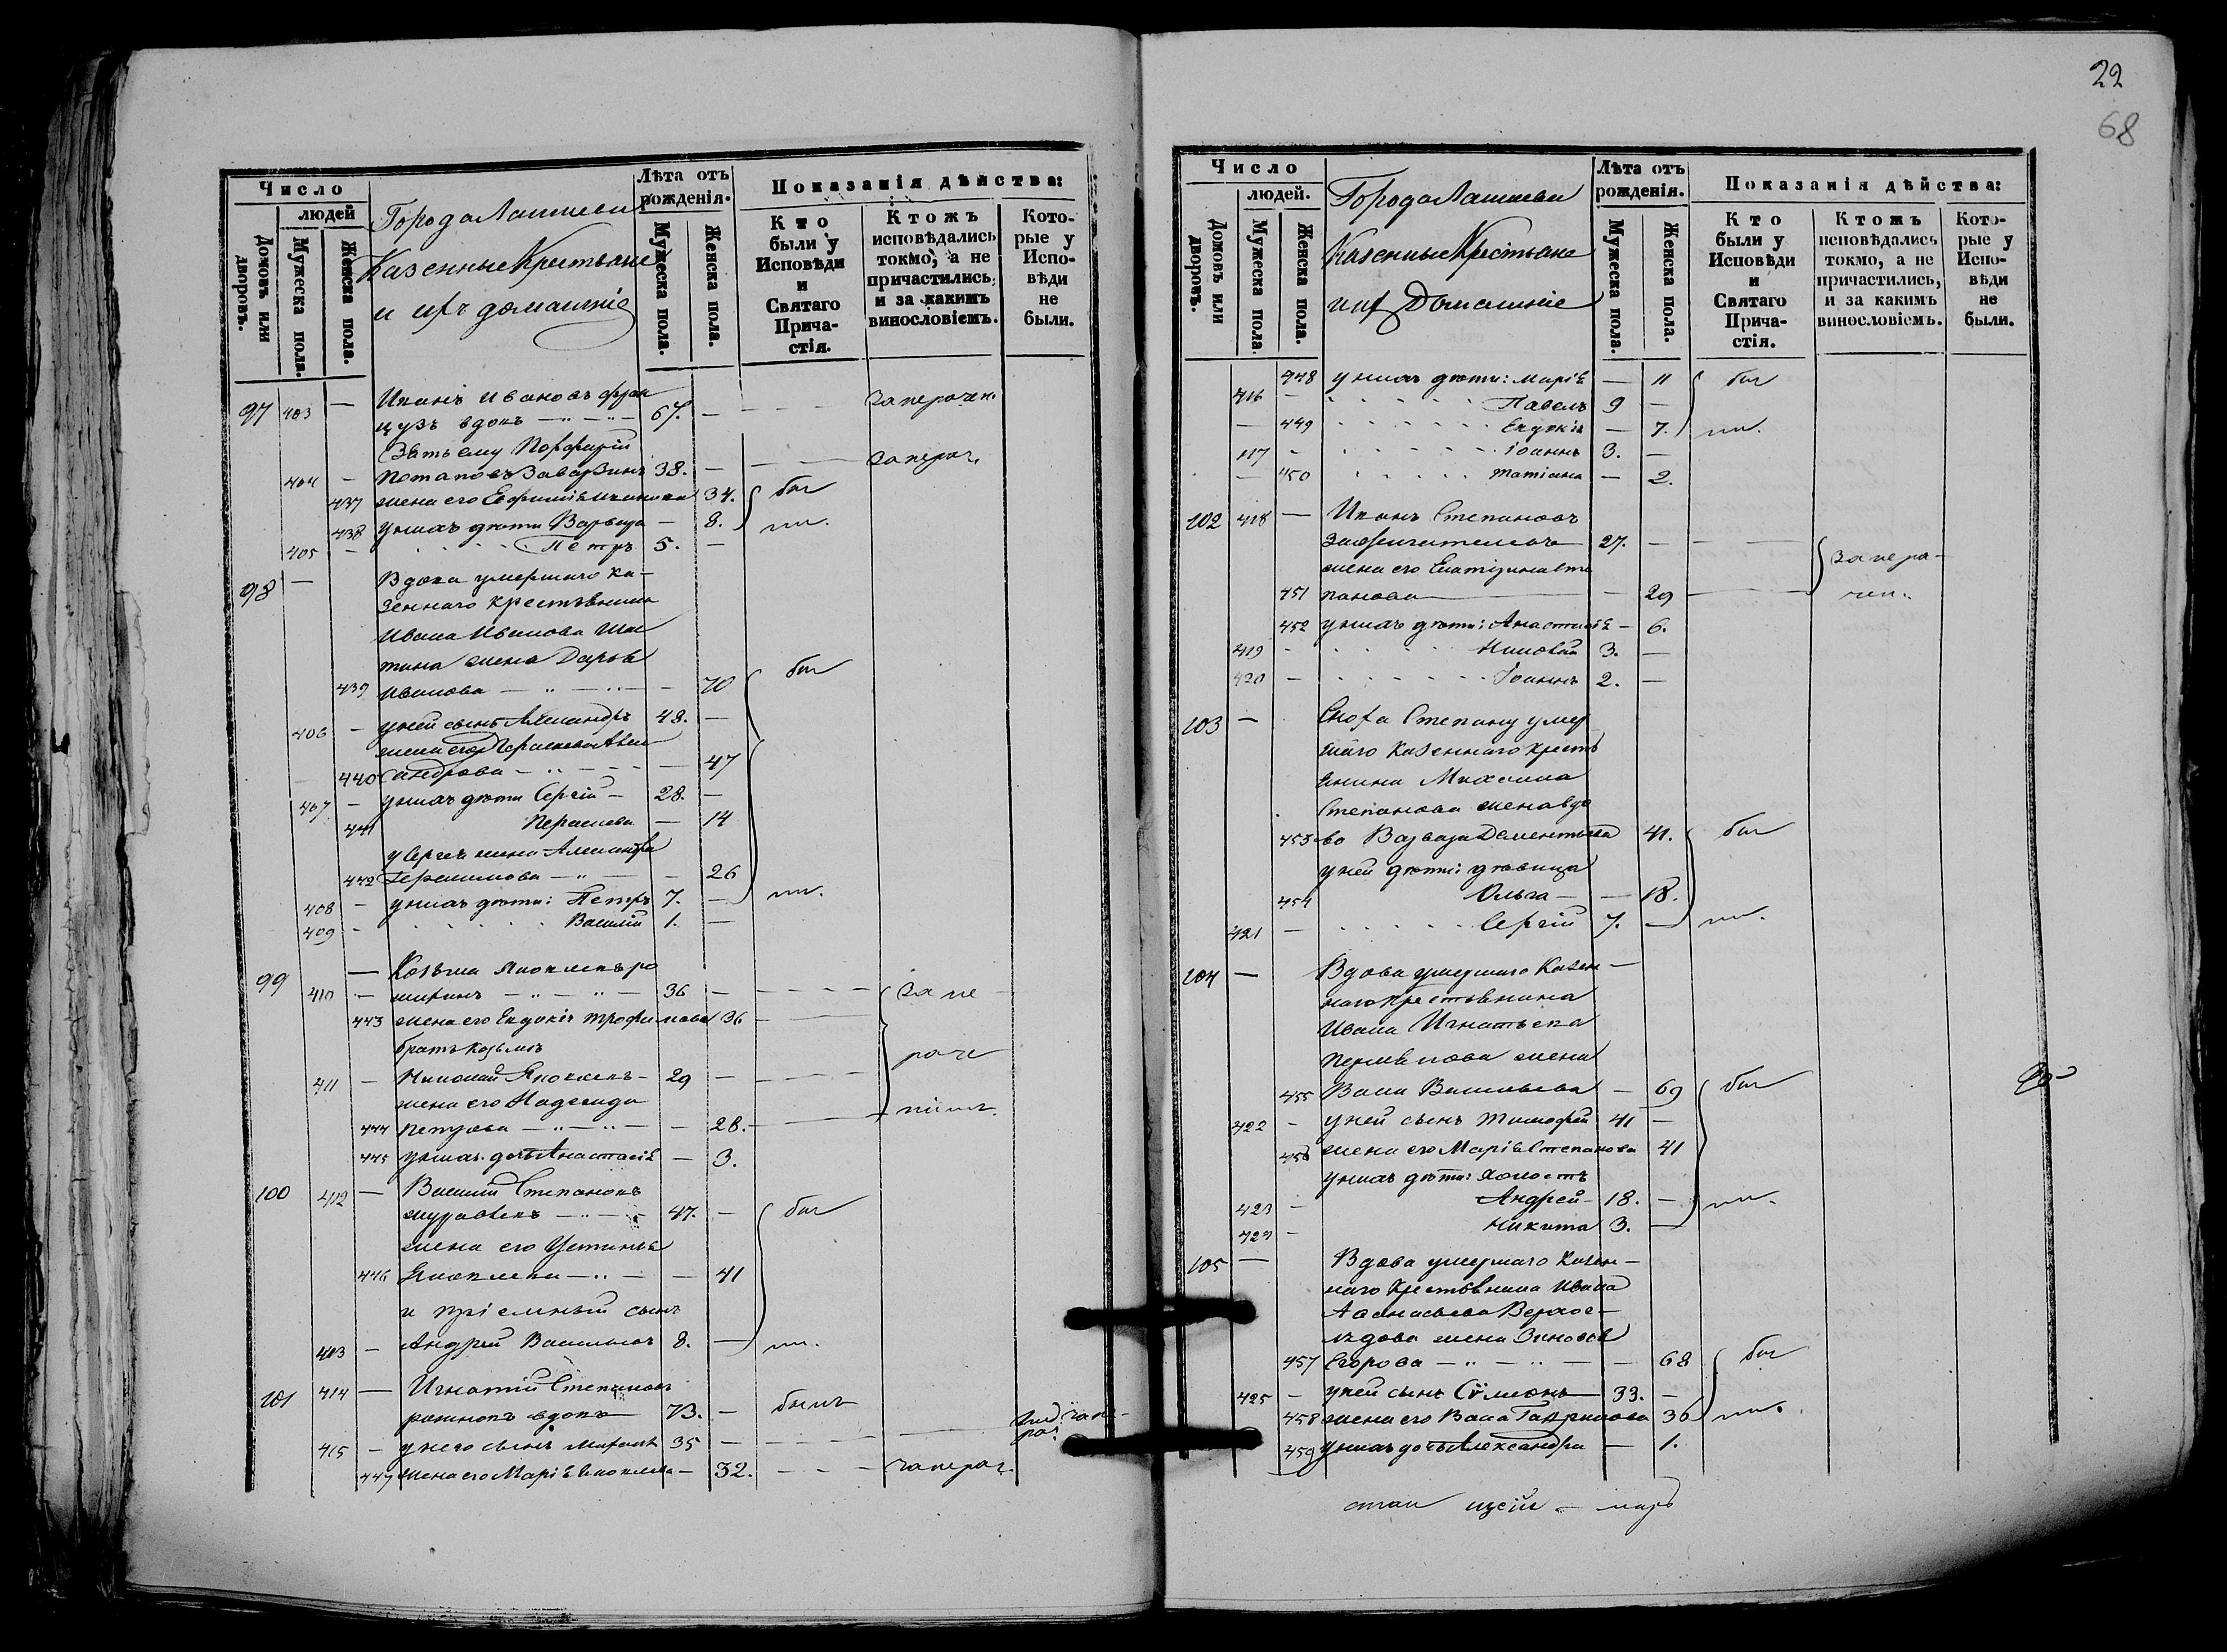 Число
людей
Домовъ или дворовъ.
Мужеска пола.
Женска пола.
Города Лаишева
Казенные Крестьяне
и ихъ домашніе
Лѣта отъ рожденія.
Мужеска пола.
Женска пола.
Показанія дѣйства:
Кто были у Исповѣди и Святаго Причастія.
Ктожъ исповѣдались токмо, а не причастились, и за какимъ винословіемъ.
Которые у Исповѣди не были.
97 403 — Иванъ Ивановъ фран
цузъ вдовъ 67. — занерачен.
Зять ему Порфирій
404 — Потаповъ Заварзинъ 38. — занерач.
437 жена его Евфимія Иванова 34. быт
438 у нихъ дѣти Варвара — 8. ли.
405 — Петръ 5. —
98 — Вдова умершаго Ка-
зеннаго крестьянина
Ивана Иванова
жена Дарья
439 Иванова — 70 быт
406 — у ней сынъ Александръ 48. —
жена его Параскева Алек
440 сандрова — 47
407 — у нихъ дѣти Сергій — 28. —
441 Параскева — 14
у Сергія жена Александра
442 Герасимова — 26
408 — у нихъ дѣти: Петръ 7. — ли.
409 — Василій 1. —
99 — Козьма Яковлевъ
410 — 36 — за не
443 жена его Евдокія Трофимова 36
братъ Козьмы
раче
411 — Николай Яковлевъ — 29 —
жена его Надежда
444 Петрова — 28.
445 у нихъ дочь Анастасія — 3.
100 412 — Василій Степановъ
Журавлевъ 47. — быт
жена его Устинья
446 Яковлева — 41
и пріемный сынъ
413 — Андрей Васильевъ 8. — ли.
101 414 — Игнатій Степановъ
вдовъ 73. — былъ
415 — у него сынъ 35 —
447 жена его Марія Яковлева — 32. — занерач.
22
68
Число
людей.
Домовъ или дворовъ.
Мужеска пола.
Женска пола.
Города Лаишева
Казенные Крестьяне
и их Домашніе
Лѣта отъ рожденія.
Мужеска пола.
Женска пола.
Показанія дѣйства:
Кто были у Исповѣди и Святаго Причастія.
Ктожъ исповѣдались токмо, а не причастились, и за какимъ винословіемъ.
Которые у Исповѣди не были.
448 у нихъ дѣти: Марія — 11 быт
416 — Павелъ 9 —
— 449 Евдокія — 7. ли.
417 — Іоаннъ 3. —
— 450 Татіана — 2.
102 418 — Иванъ Степановъ
27. —
жена его Екатерина Сте занера-
451 панова — 29 чен.
452 у нихъ дѣти: Анастасія — 6.
419 — Николай 3. —
420 — Іоаннъ 2. —
103 — Сноха Степану умер
шаго Казеннаго кресть
янина Михаила
Степанова жена вдо
453 ва Варвара Дементьева 41. быт
у ней дѣти: дѣвица
454 Ольга — 18.
421 — Сергій 7. — ли.
104 — Вдова умершаго Казен-
наго крестьянина
Ивана Игнатьева
жена
455 Васа Васильева — 69 быт
422 — у ней сынъ Тимофей 41 —
456 жена его Марія Степанова 41
у нихъ дѣти: холостъ
423 — Андрей — 18. — ли.
424 — Никита 3. —
105 — Вдова умершаго Казен-
наго Крестьянина Ивана
Афанасьева
жена Зиновія
457 Егорова — 68 быт
425 — у ней сынъ Сѵмеонъ 33. —
458 жена его Васа Гаврилова 36 ли.
459 у нихъ дочь Александра — 1.